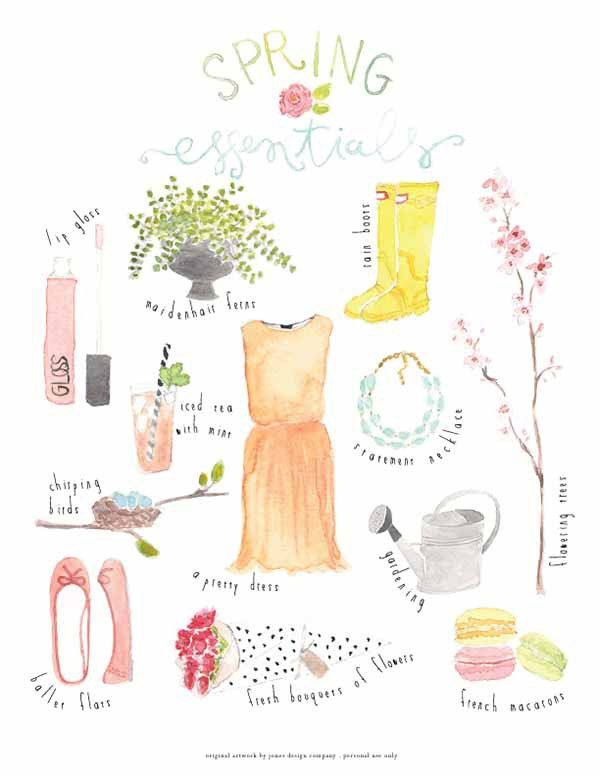 SPRING
essentials
lip gloss
GLOSS
maidenhair ferns
rain boots
iced tea
with mint
statement necklace
chirping
birds
a pretty dress
gardening
flowering trees
ballet flats
fresh bouquets of flowers
french macarons
original artwork by jones design company . personal use only